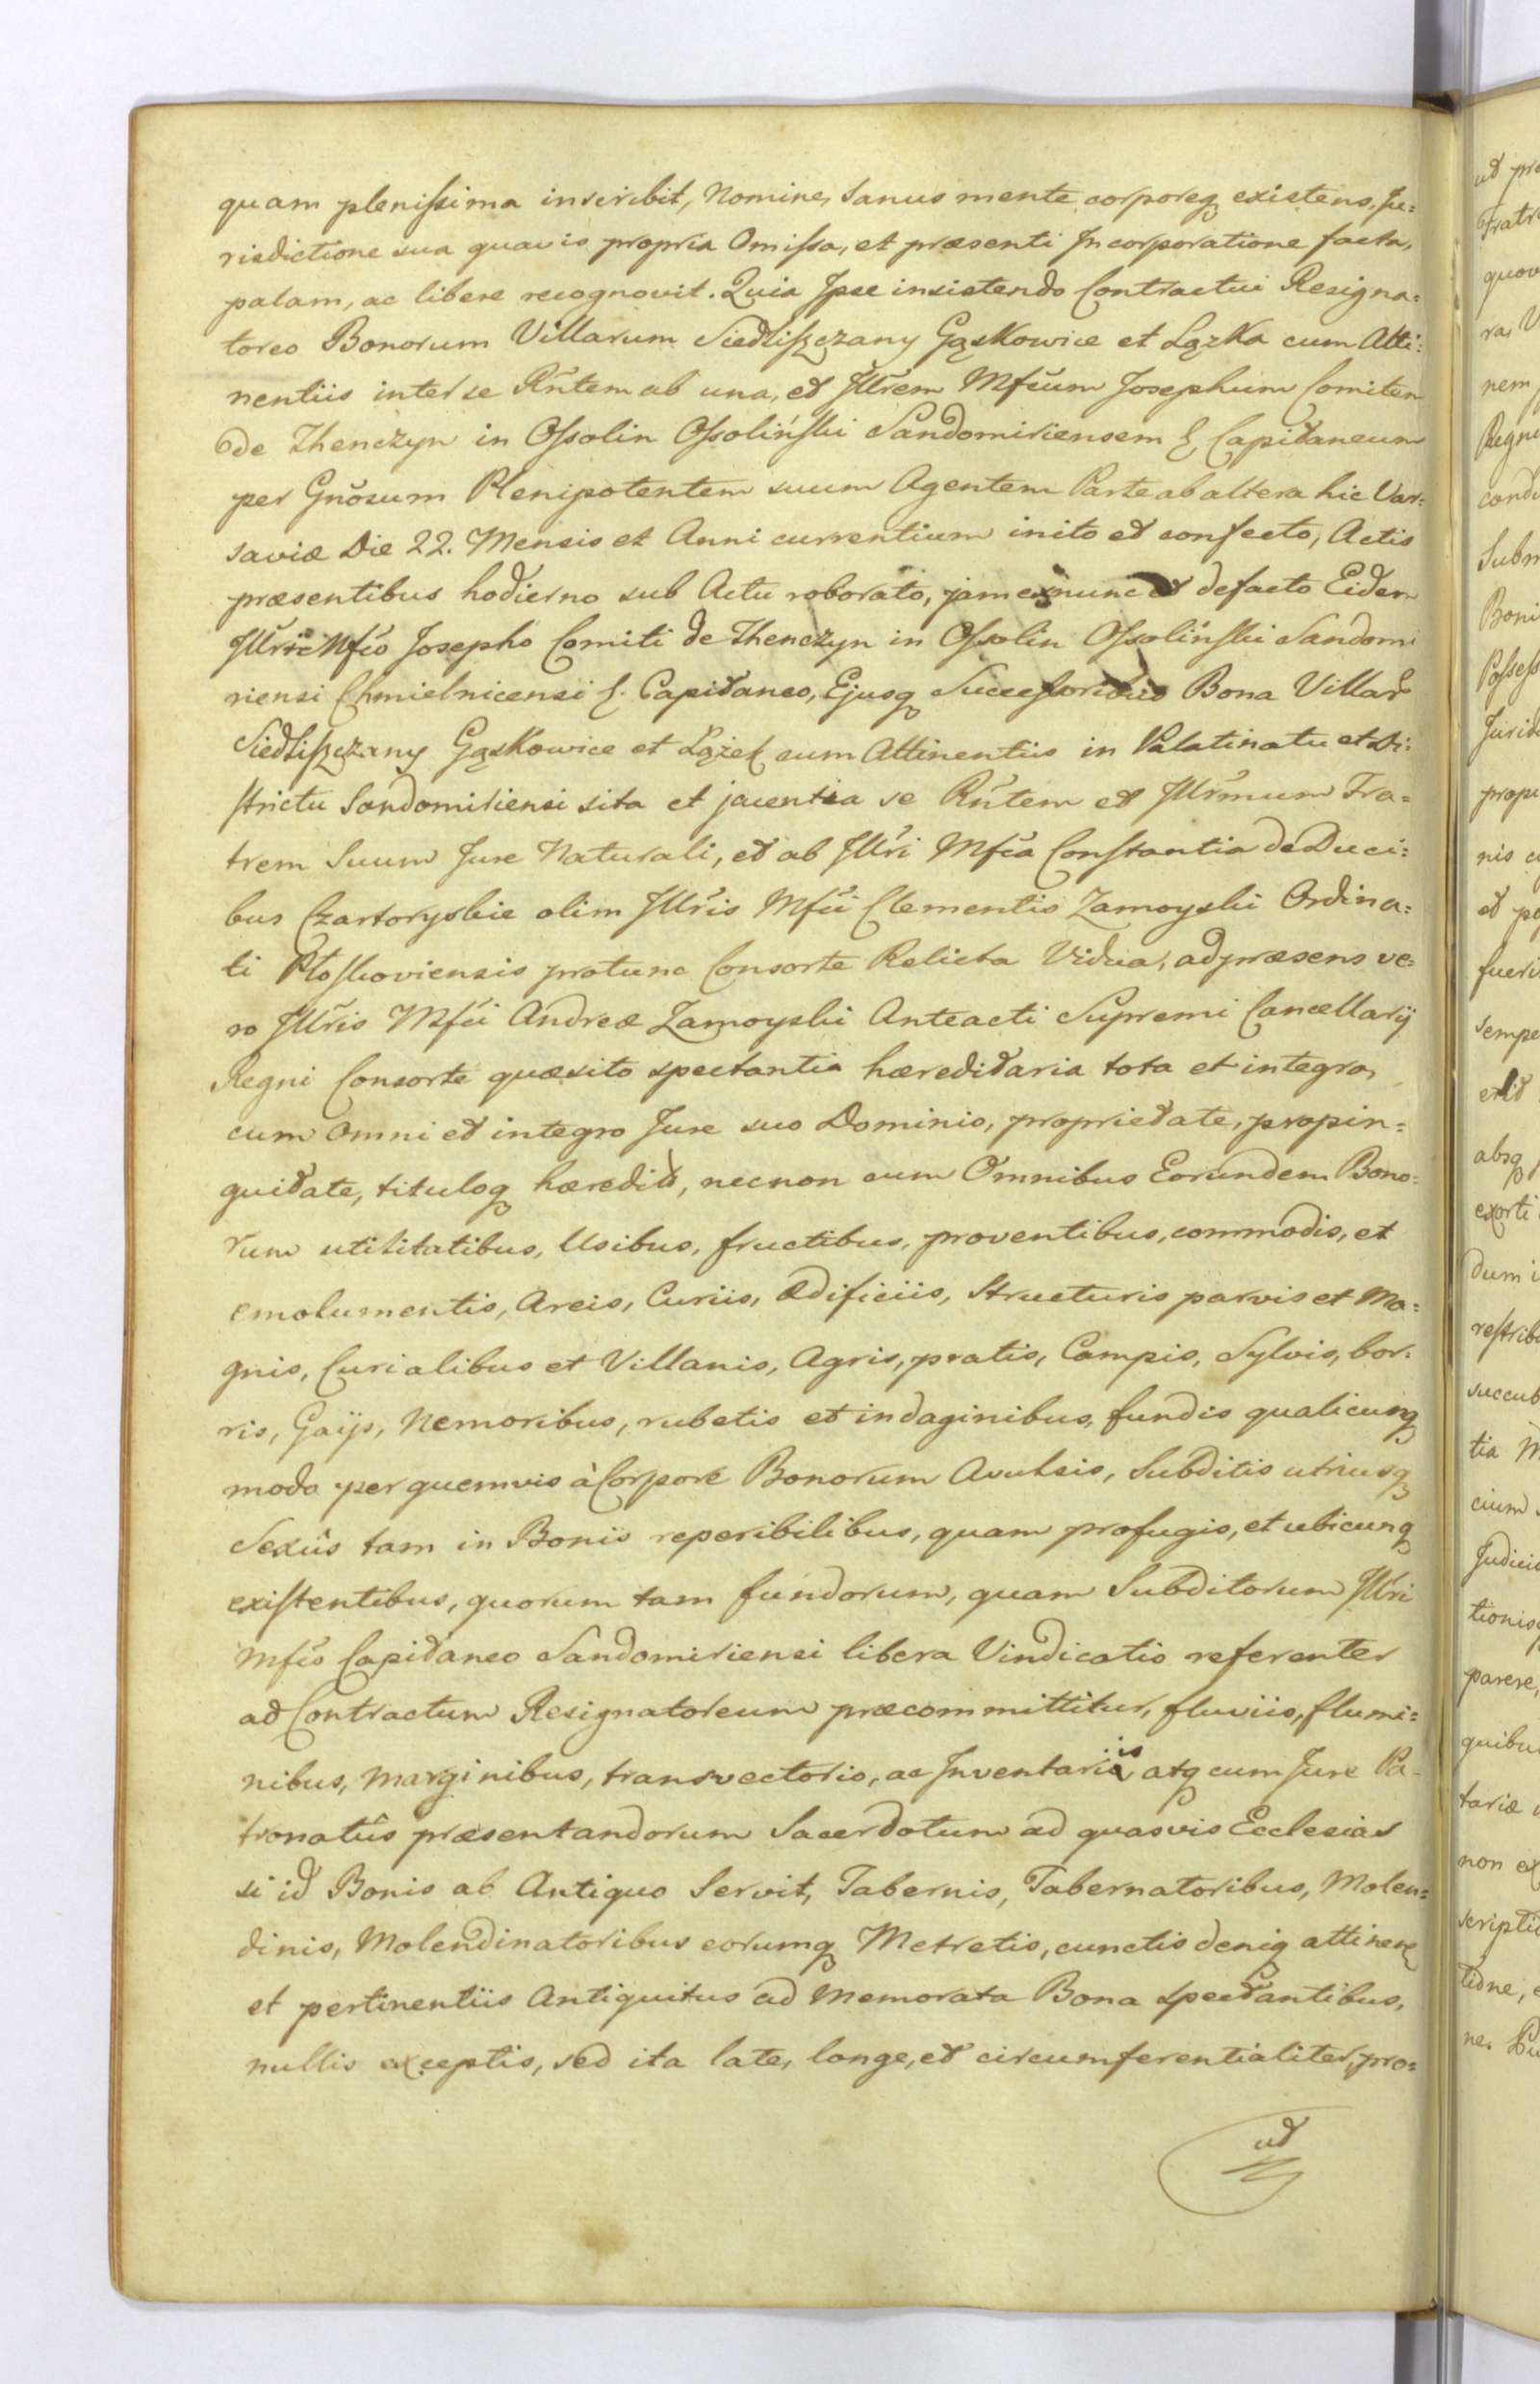 quam plenissima inscribit, Nomine, Sanus mente corporeq existens, Ju=
risdictione sua quavis propria Omissa, et præsenti Incorporatione facta,
palam, ac libere recognovit. Quia Ipse insistendo Contractui Resigna=
toreo Bonorum Villarum Siedliszczany Gąskowice et Lązka cum Atti=
nentiis inter se Rñtem ab una, et Jllrem Mfcum Josephum Comitem
de Thenczyn in Ossolin Ossoliński Sandomiriensem & Capitaneum
per Gnõsum Plenipotentem suum Agentem Parte ab altera hic Var=
saviæ Die 22. Mensis et Anni currentium inito et confecto, Actis
præsentibus hodierno sub Actu roborato, jam exnunc et defacto Eidem
Jllri Mfco Josepho Comiti de Thenczyn in Ossolin Ossoliński Sandomi
riensi Chmielnicensi &. Capitaneo, Ejusq Successoribus Bona Villar
Siedliszczany Gąskowice et Lążek cum Attinentiis in Palatinatu et Di=
strictu Sandomiriensi sita et jacentia se Rñtem et Jllrmum Fra=
trem Suum Jure Naturali, et ab Jllri Mfca Constantia de Duci=
bus Czartoryskie olim Jllris Mfci Clementis Zamoyski Ordina=
ti Płoskoviensis protunc Consorte Relicta Vidua, adpræsens ve=
ro Jllris Mfci Andreæ Zamoyski Anteacti Supremi Cancellarij
Regni Consorte quæsito spectantia hæreditaria tota et integra,
cum Omni et integro Jure suo Dominio, proprietate, propin=
quitate, tituloq hæredit, necnon cum Omnibus Eorundem Bono=
rum utilitatibus, Usibus, fructibus, proventibus, commodis, et
emolumentis, Areis, Curiis, Ædificiis, Structuris parvis et Ma=
gnis, Curialibus et Villanis, Agris, pratis, Campis, Sylvis, bor=
ris, Gaijs, Nemoribus, rubetis et indaginibus, fundis qualicunq
modo per quemvis à Corpore Bonorum Avulsis, Subditis utriusq
Sexûs tam in Bonis reperibilibus, quam profugis, et ubicunq
existentibus, quorum tam fundorum, quam Subditorum Jllri
Mfco Capitaneo Sandomiriensi libera Vindicatio referenter
ad Contractum Resignatoreum præcommittitur, fluviis, flumi=
nibus, marginibus, transvectoris, ac Inventariis, atq cum Jure Pa=
tronatûs præsentandorum Sacerdotum ad quasvis Ecclesias
si id Bonis ab Antiquo Servit, Tabernis, Tabernatoribus, Molen=
dinis, Molendinatoribus eorumq Metretis, cunctis deniq attinen
et pertinentiis Antiquitus ad Memorata Bona spectantibus,
nullis exceptis, sed ita late, longe, et circumferentialiter, pro=
ut